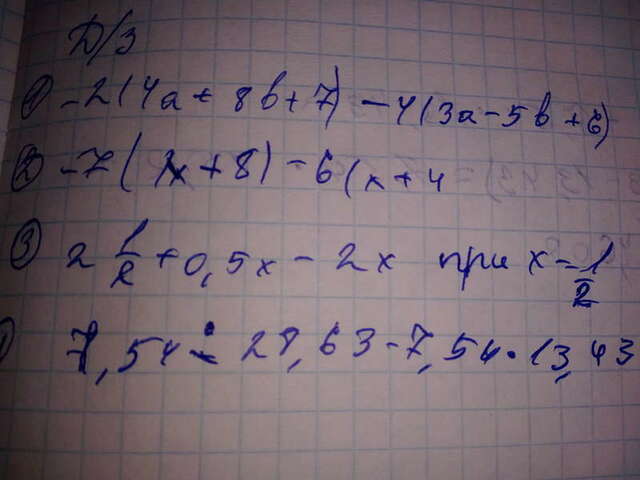 Д/З
① -2(4a + 8b + 7) - 4(3a - 5b + 6)
② -7(x + 8) - 6(x + 4
③ 2 1/2 + 0,5x - 2x при x = 1/2
7,54 · 28,63 - 7,54 · 13,43